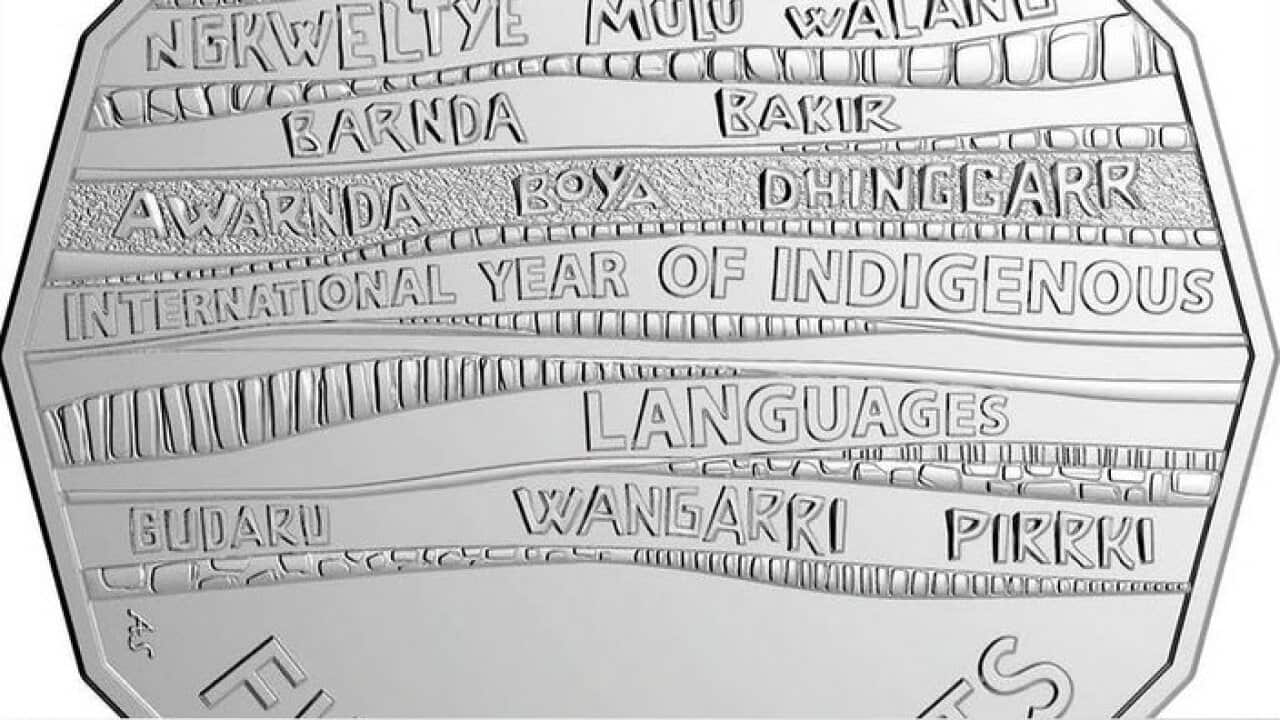 NGKWELTYE MULU WALANG
BARNDA BAKIR
AWARNDA BOYA DHINGGARR
INTERNATIONAL YEAR OF INDIGENOUS
LANGUAGES
GUDARU WANGARRI PIRRKI
AS